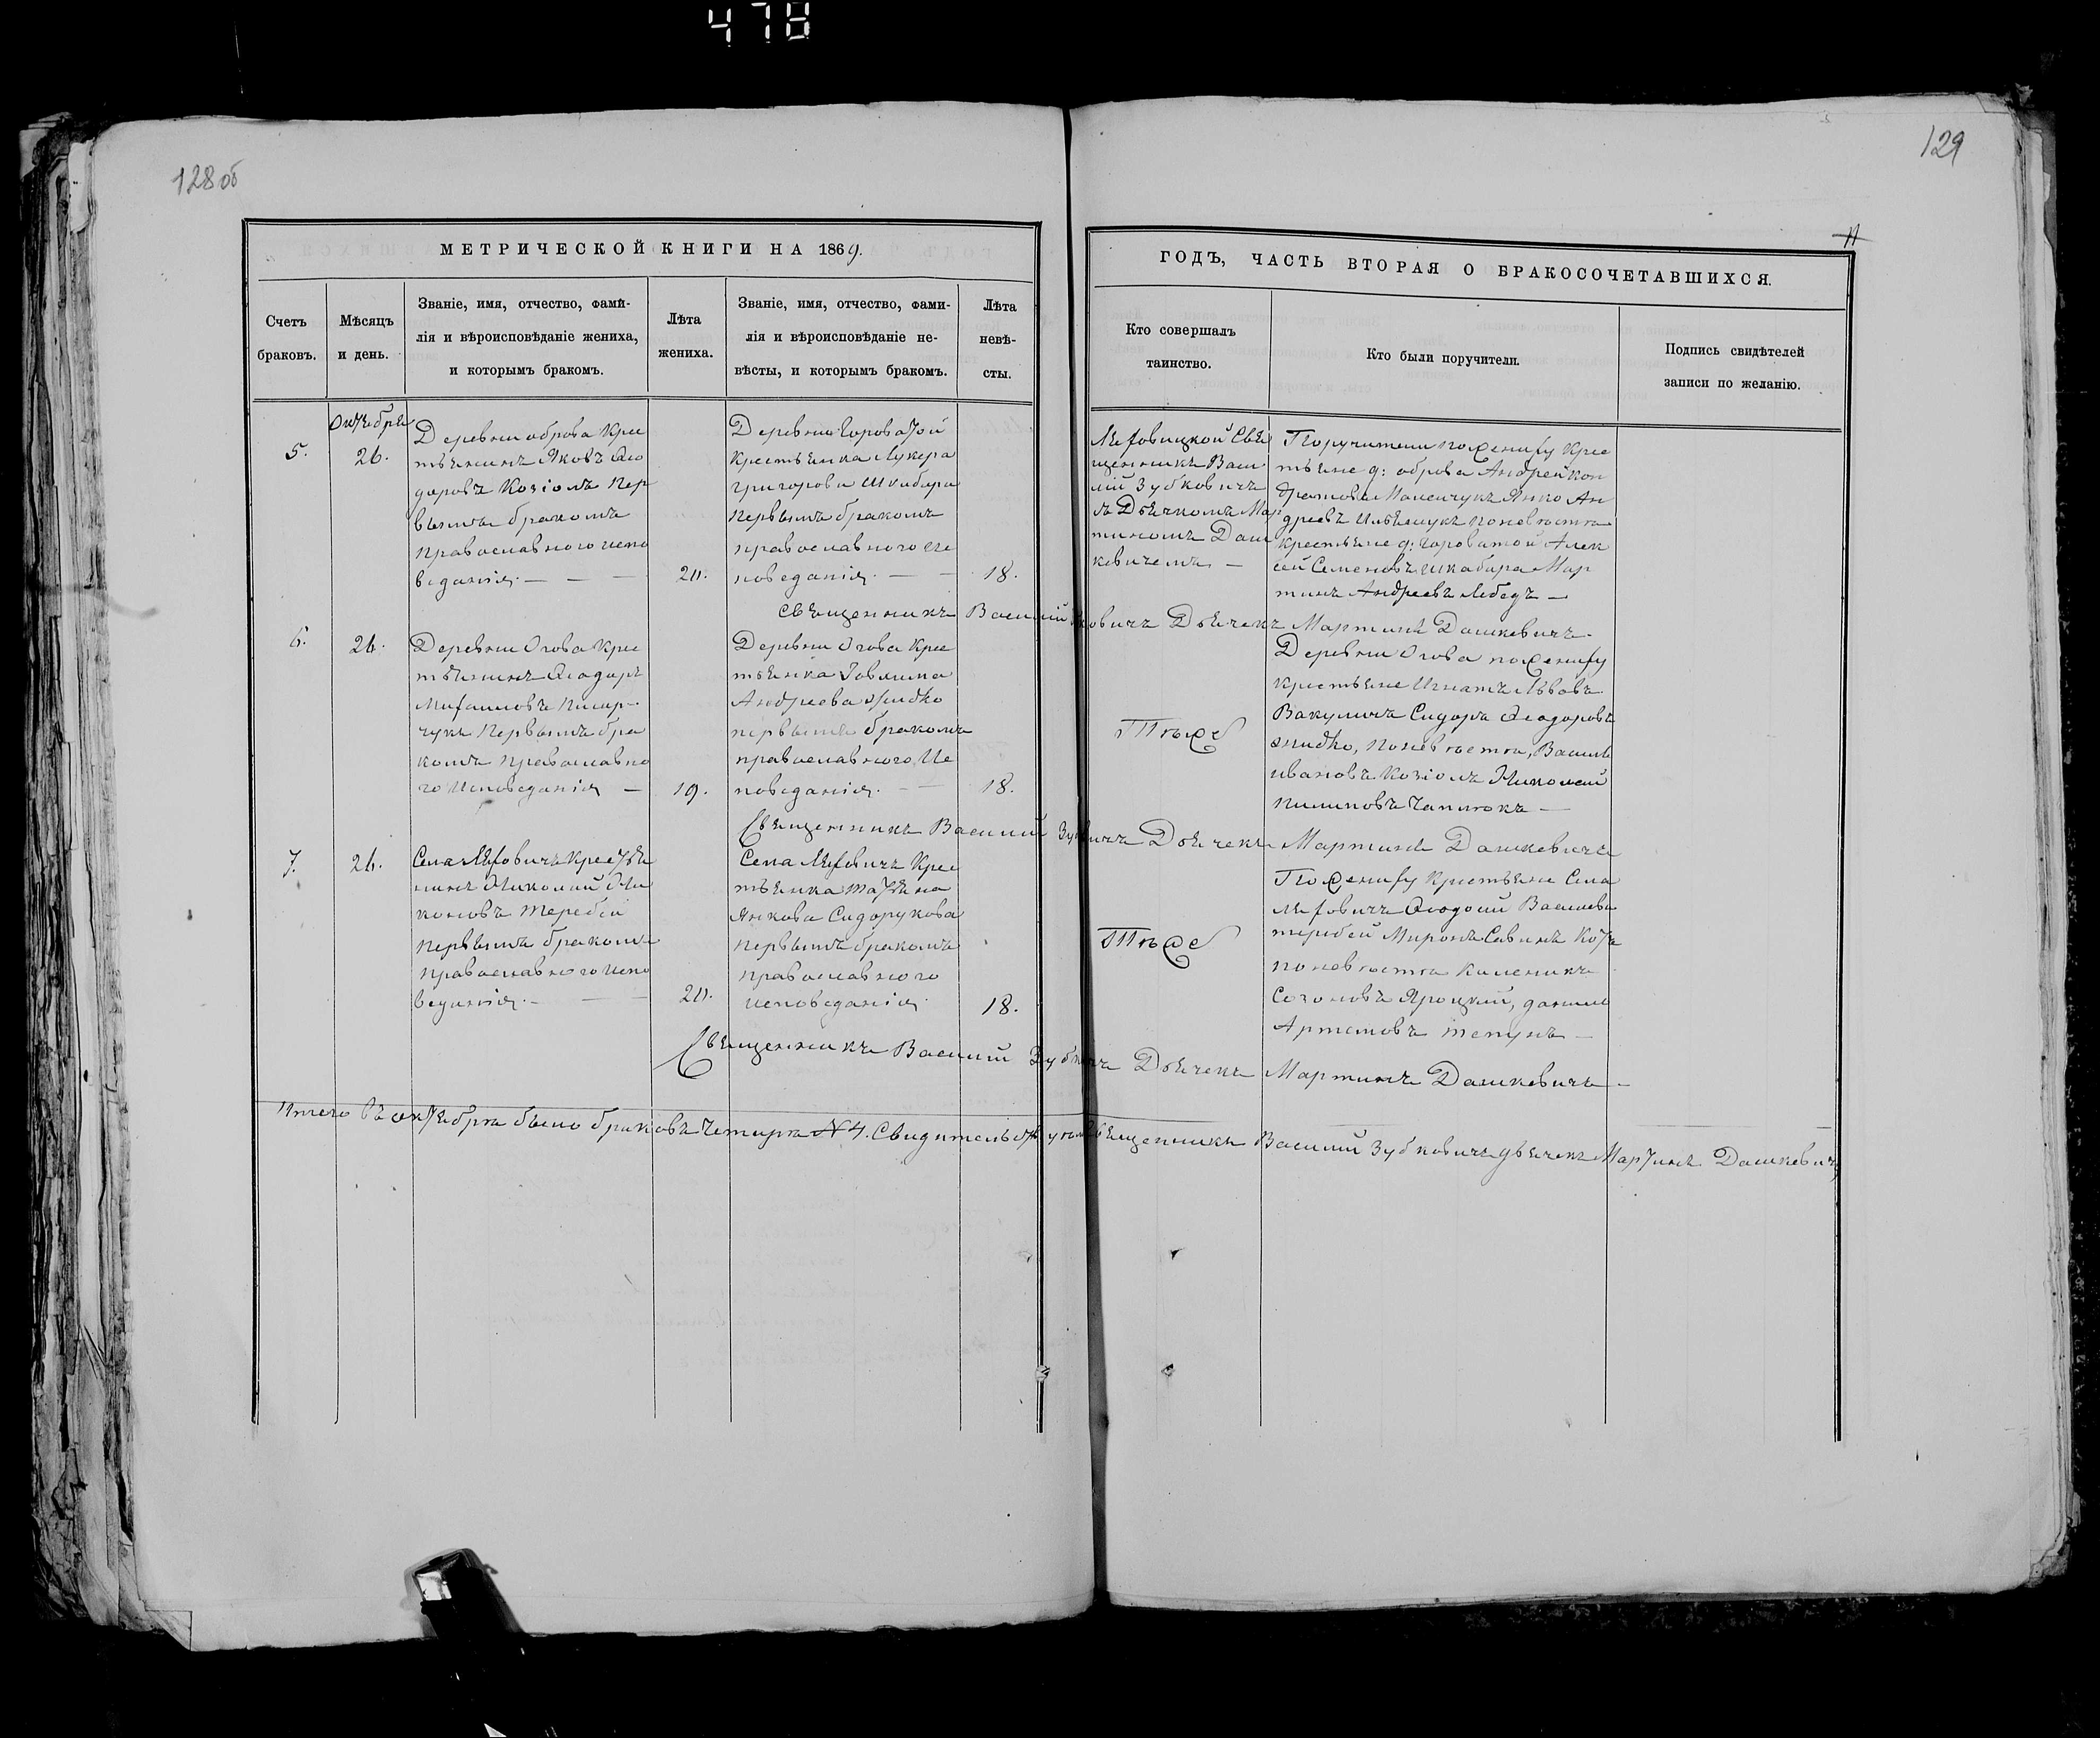 478
128 об
129
11
МЕТРИЧЕСКОЙ КНИГИ НА 1869.
ГОДЪ, ЧАСТЬ ВТОРАЯ О БРАКОСОЧЕТАВШИХСЯ.
Счетъ
браковъ.
Мѣсяцъ
и день.
Званіе, имя, отчество, фами-
лія и вѣроисповѣданіе жениха,
и которымъ бракомъ.
Лѣта
жениха.
Званіе, имя, отчество, фами-
лія и вѣроисповѣданіе не-
вѣсты, и которымъ бракомъ.
Лѣта
невѣ-
сты.
Кто совершалъ
таинство.
Кто были поручители.
Подпись свидѣтелей
записи по желанію.
5.
Октября
26.
Деревни оброва Крес
тьянинъ Яковъ Ѳео
доровъ Козіолъ Пер
вымъ бракомъ
православного испо
веданія. — — —
20.
Деревни Гороватой
Крестьянка Лукера
Григорова Шкабара
Первымъ бракомъ
православного Ис
поведанія. — —
18.
Свя
щенникъ Васи
лій Зубковичъ
съ Дьячкомъ Мар
тиномъ Даш
кевичемъ —
Поручители по жениху Крес
тьяне д: оброва Андрей Кон
Янко Ан
дреевъ по невѣстѣ
крестьяне д: Гороватой Алек
сей Семеновъ Шкабара Мар
тинъ Андреевъ Лебедь —
Священникъ Василій Дьячекъ Мартинъ Дашкевичъ.
6.
26.
Деревни Огова Крес
тьянинъ Ѳеодоръ
Михаиловъ Писар-
чукъ Первымъ бра
комъ Православно
го Исповеданія —
19.
Деревни Огова Крес
тьянка
Андреева
первымъ бракомъ
православного Ис
поведанія. — —
18.
Тѣже
Деревни Огова по жениху
крестьяне Игнатъ Львовъ
Вакуличъ Сидоръ Ѳеодоровъ
по невѣстѣ, Василь
ивановъ Козіолъ Николай
—
Священникъ Василий Дьячекъ Мартинъ Дашкевичъ
7.
26.
Села Крестья
нинъ Николай Ни
коновъ Теребей
первымъ бракомъ
православного испо
веданія. — — —
20.
Села Крес
тьянка Татьяна
Янкова Сидорукова
первымъ бракомъ
православного
исповеданія.
18.
Тѣже
По жениху Крестьяне Села
Василіевъ
теребей Миронъ Савинъ
по невѣстѣ
Созоновъ Яроцкій, данило
Артемовъ —
Священникъ Василий Дьячекъ Мартинъ Дашкевичъ —
Итого въ октябрѣ было браковъ Четыри № 4. Священникъ Василий Зубковичъ дьячекъ Мартинъ Дашкевичъ